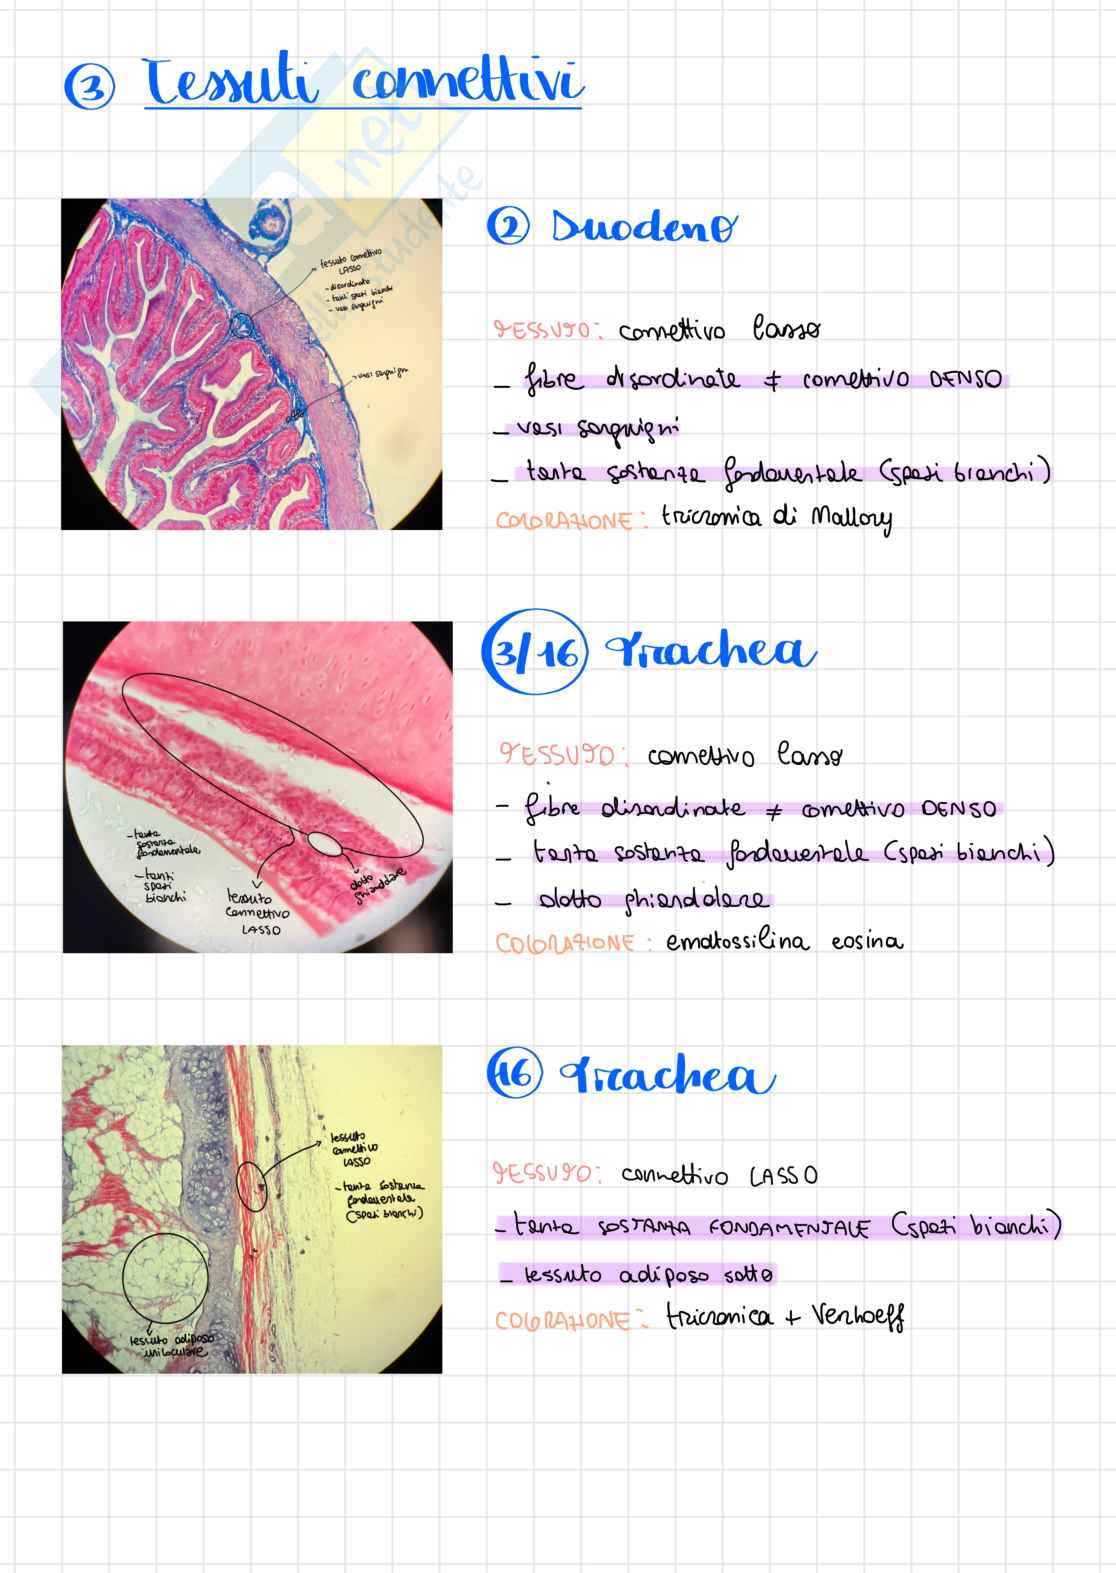 3 Tessuti connettivi
2 Duodeno
tessuto connettivo
LASSO
- disordinato
- tanti spazi bianchi
- vasi sanguigni
- vasi sanguigni
TESSUTO: connettivo lasso
- fibre disordinate ≠ connettivo DENSO
- vasi sanguigni
- tanta sostanza fondamentale (spazi bianchi)
COLORAZIONE: tricromica di Mallory
3/16 Trachea
- tanta
sostanza
fondamentale
- tanti
spazi
bianchi
tessuto
connettivo
LASSO
dotto
ghiandolare
TESSUTO: connettivo lasso
- fibre disordinate ≠ connettivo DENSO
- tanta sostanza fondamentale (spazi bianchi)
- dotto ghiandolare
COLORAZIONE: ematossilina eosina
16 Trachea
tessuto
connettivo
LASSO
- tanta sostanza
fondamentale
(spazi bianchi)
tessuto adiposo
uniloculare
TESSUTO: connettivo LASSO
- tanta SOSTANZA FONDAMENTALE (spazi bianchi)
- tessuto adiposo sotto
COLORAZIONE: tricromica + Verhoeff